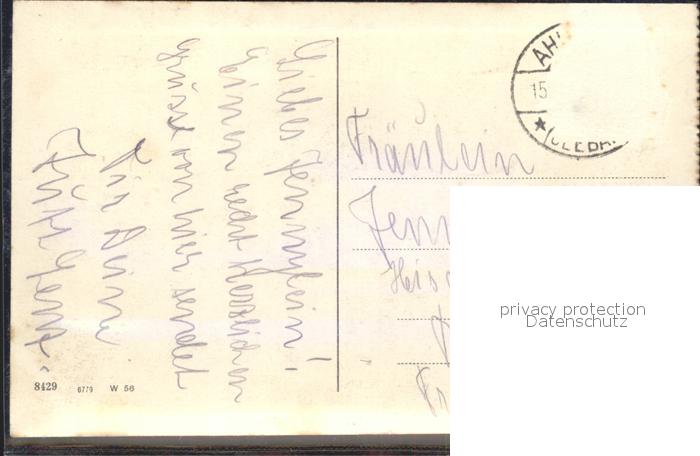 Liebes Jennylein!
Einen recht herzlichen
Grüsse von hier sendet
Dir Deine
8429 6779 W 56
AH
15
Fräulein
Jenn
privacy protection
Datenschutz